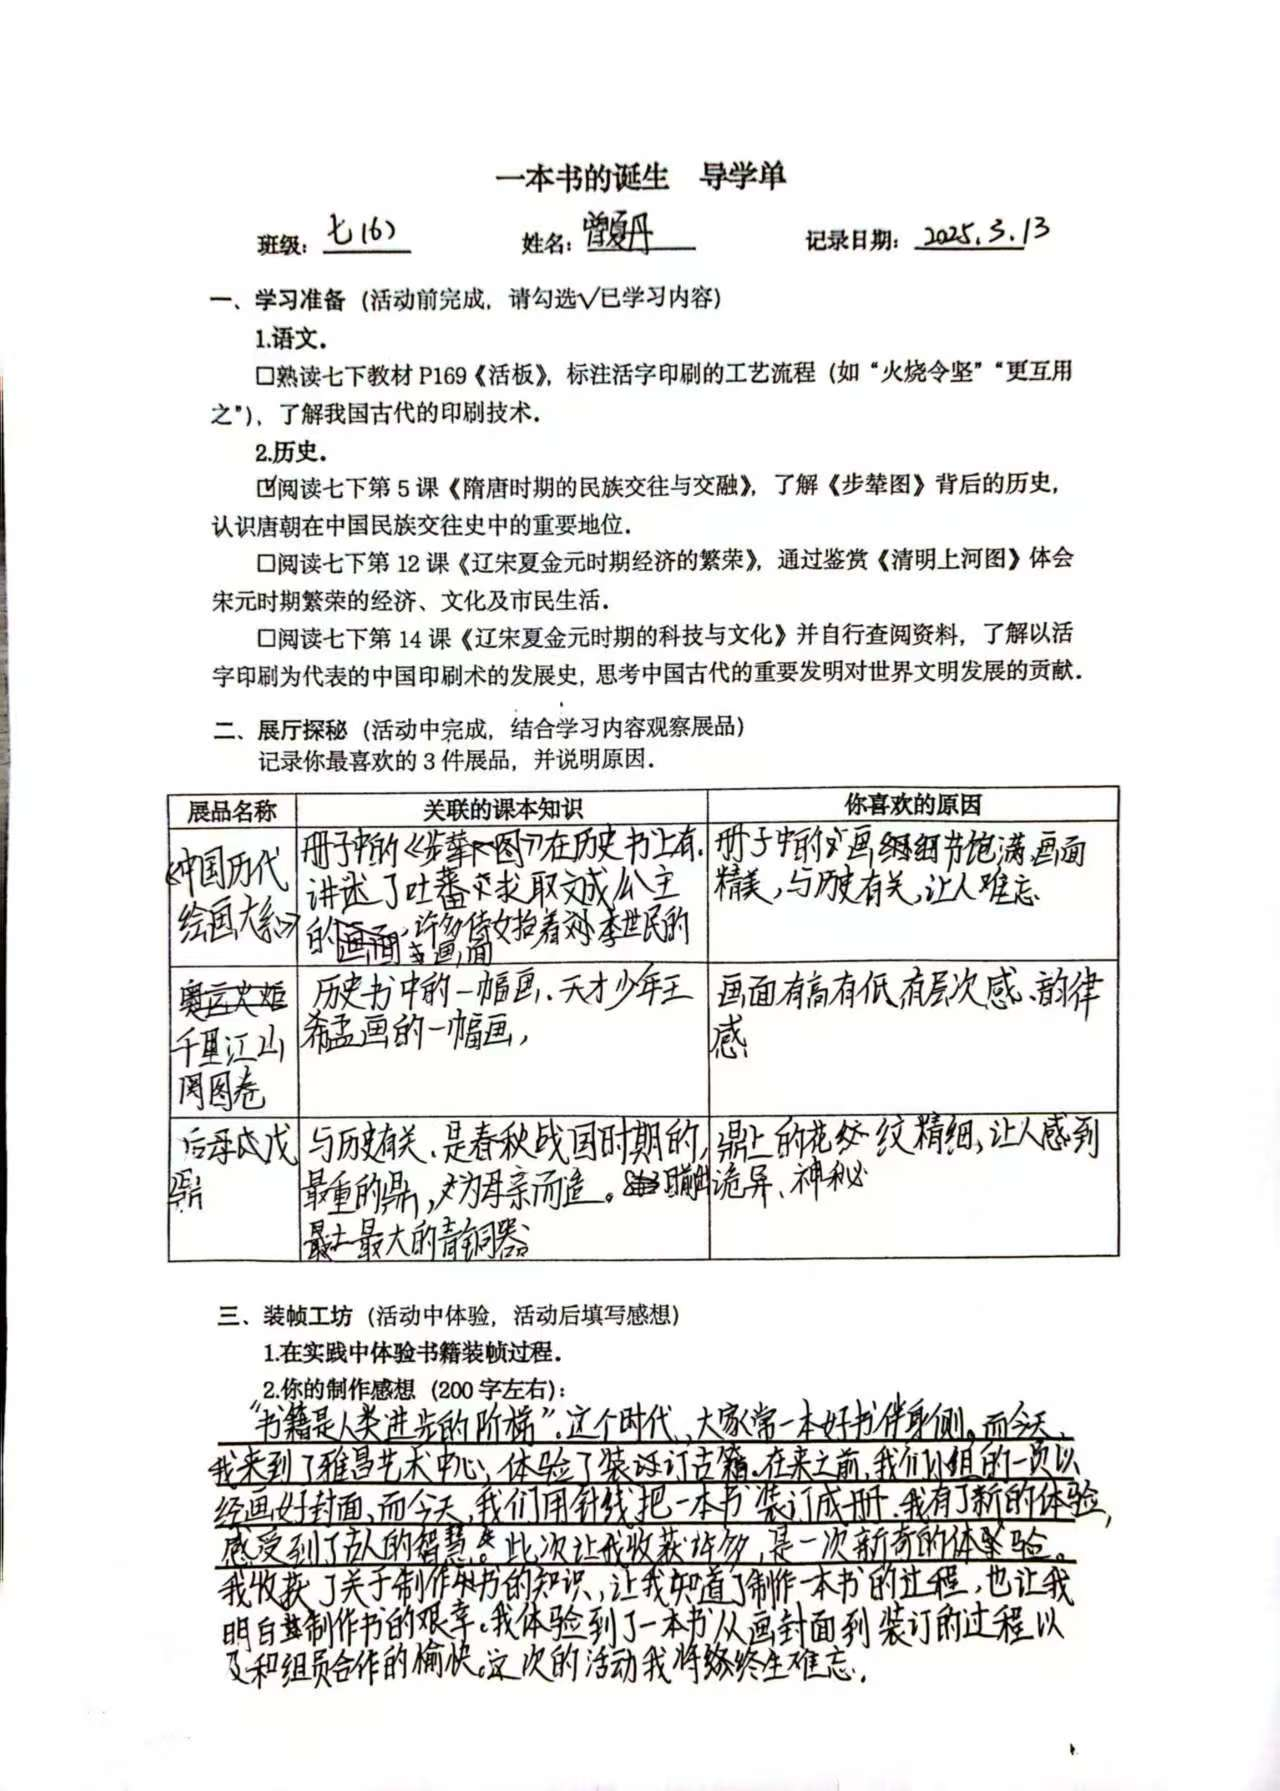 一本书的诞生 导学单
班级：七(6) 姓名：曾夏丹 记录日期：2025.3.13
一、学习准备（活动前完成，请勾选√已学习内容）
1.语文.
□熟读七下教材 P169《活板》，标注活字印刷的工艺流程（如“火烧令坚”“更互用
之”），了解我国古代的印刷技术.
2.历史.
☑阅读七下第 5 课《隋唐时期的民族交往与交融》，了解《步辇图》背后的历史，
认识唐朝在中国民族交往史中的重要地位.
□阅读七下第 12 课《辽宋夏金元时期经济的繁荣》，通过鉴赏《清明上河图》体会
宋元时期繁荣的经济、文化及市民生活.
□阅读七下第 14 课《辽宋夏金元时期的科技与文化》并自行查阅资料，了解以活
字印刷为代表的中国印刷术的发展史，思考中国古代的重要发明对世界文明发展的贡献.
二、展厅探秘（活动中完成，结合学习内容观察展品）
记录你最喜欢的 3 件展品，并说明原因.
展品名称 关联的课本知识 你喜欢的原因
《中国历代
绘画大系》
册子中的《步辇图》在历史书上有.
讲述了吐蕃求取文成公主
的画面,许多侍女抬着李世民的
画面
册子中的画细节饱满,画面
精美,与历史有关,让人难忘
千里江山
图卷
历史书中的一幅画、天才少年王
希孟画的一幅画,
画面有高有低,有层次感、韵律
感
后母戊
鼎
与历史有关、是春秋战国时期的,
最重的鼎,为母亲而造。目前出
土最大的青铜器
鼎上的花纹精细,让人感到
诡异、神秘
三、装帧工坊（活动中体验，活动后填写感想）
1.在实践中体验书籍装帧过程.
2.你的制作感想（200 字左右）：
“书籍是人类进步的阶梯”.这个时代,大家常一本好书伴身侧。而今天,
我来到了雅昌艺术中心,体验了装订古籍.在来之前,我们小组的一员以
经画好封面,而今天,我们用针线把一本书装订成册.我有了新的体验,
感受到了古人的智慧。此次让我收获许多,是一次新奇的体验。
我收获了关于制作书的知识,让我知道了制作一本书的过程,也让我
明白制作书的艰辛。我体验到了一本书从画封面到装订的过程以
及和组员合作的愉快。这次的活动我将终生难忘.